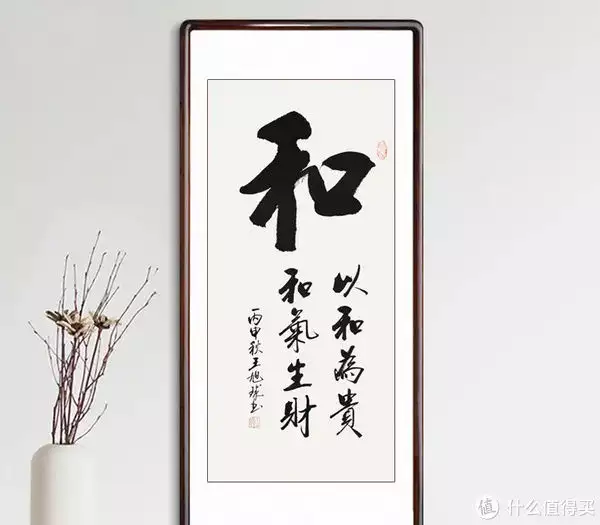 和
以和為貴
和氣生財
丙申秋王旭號書
值 什么值得买